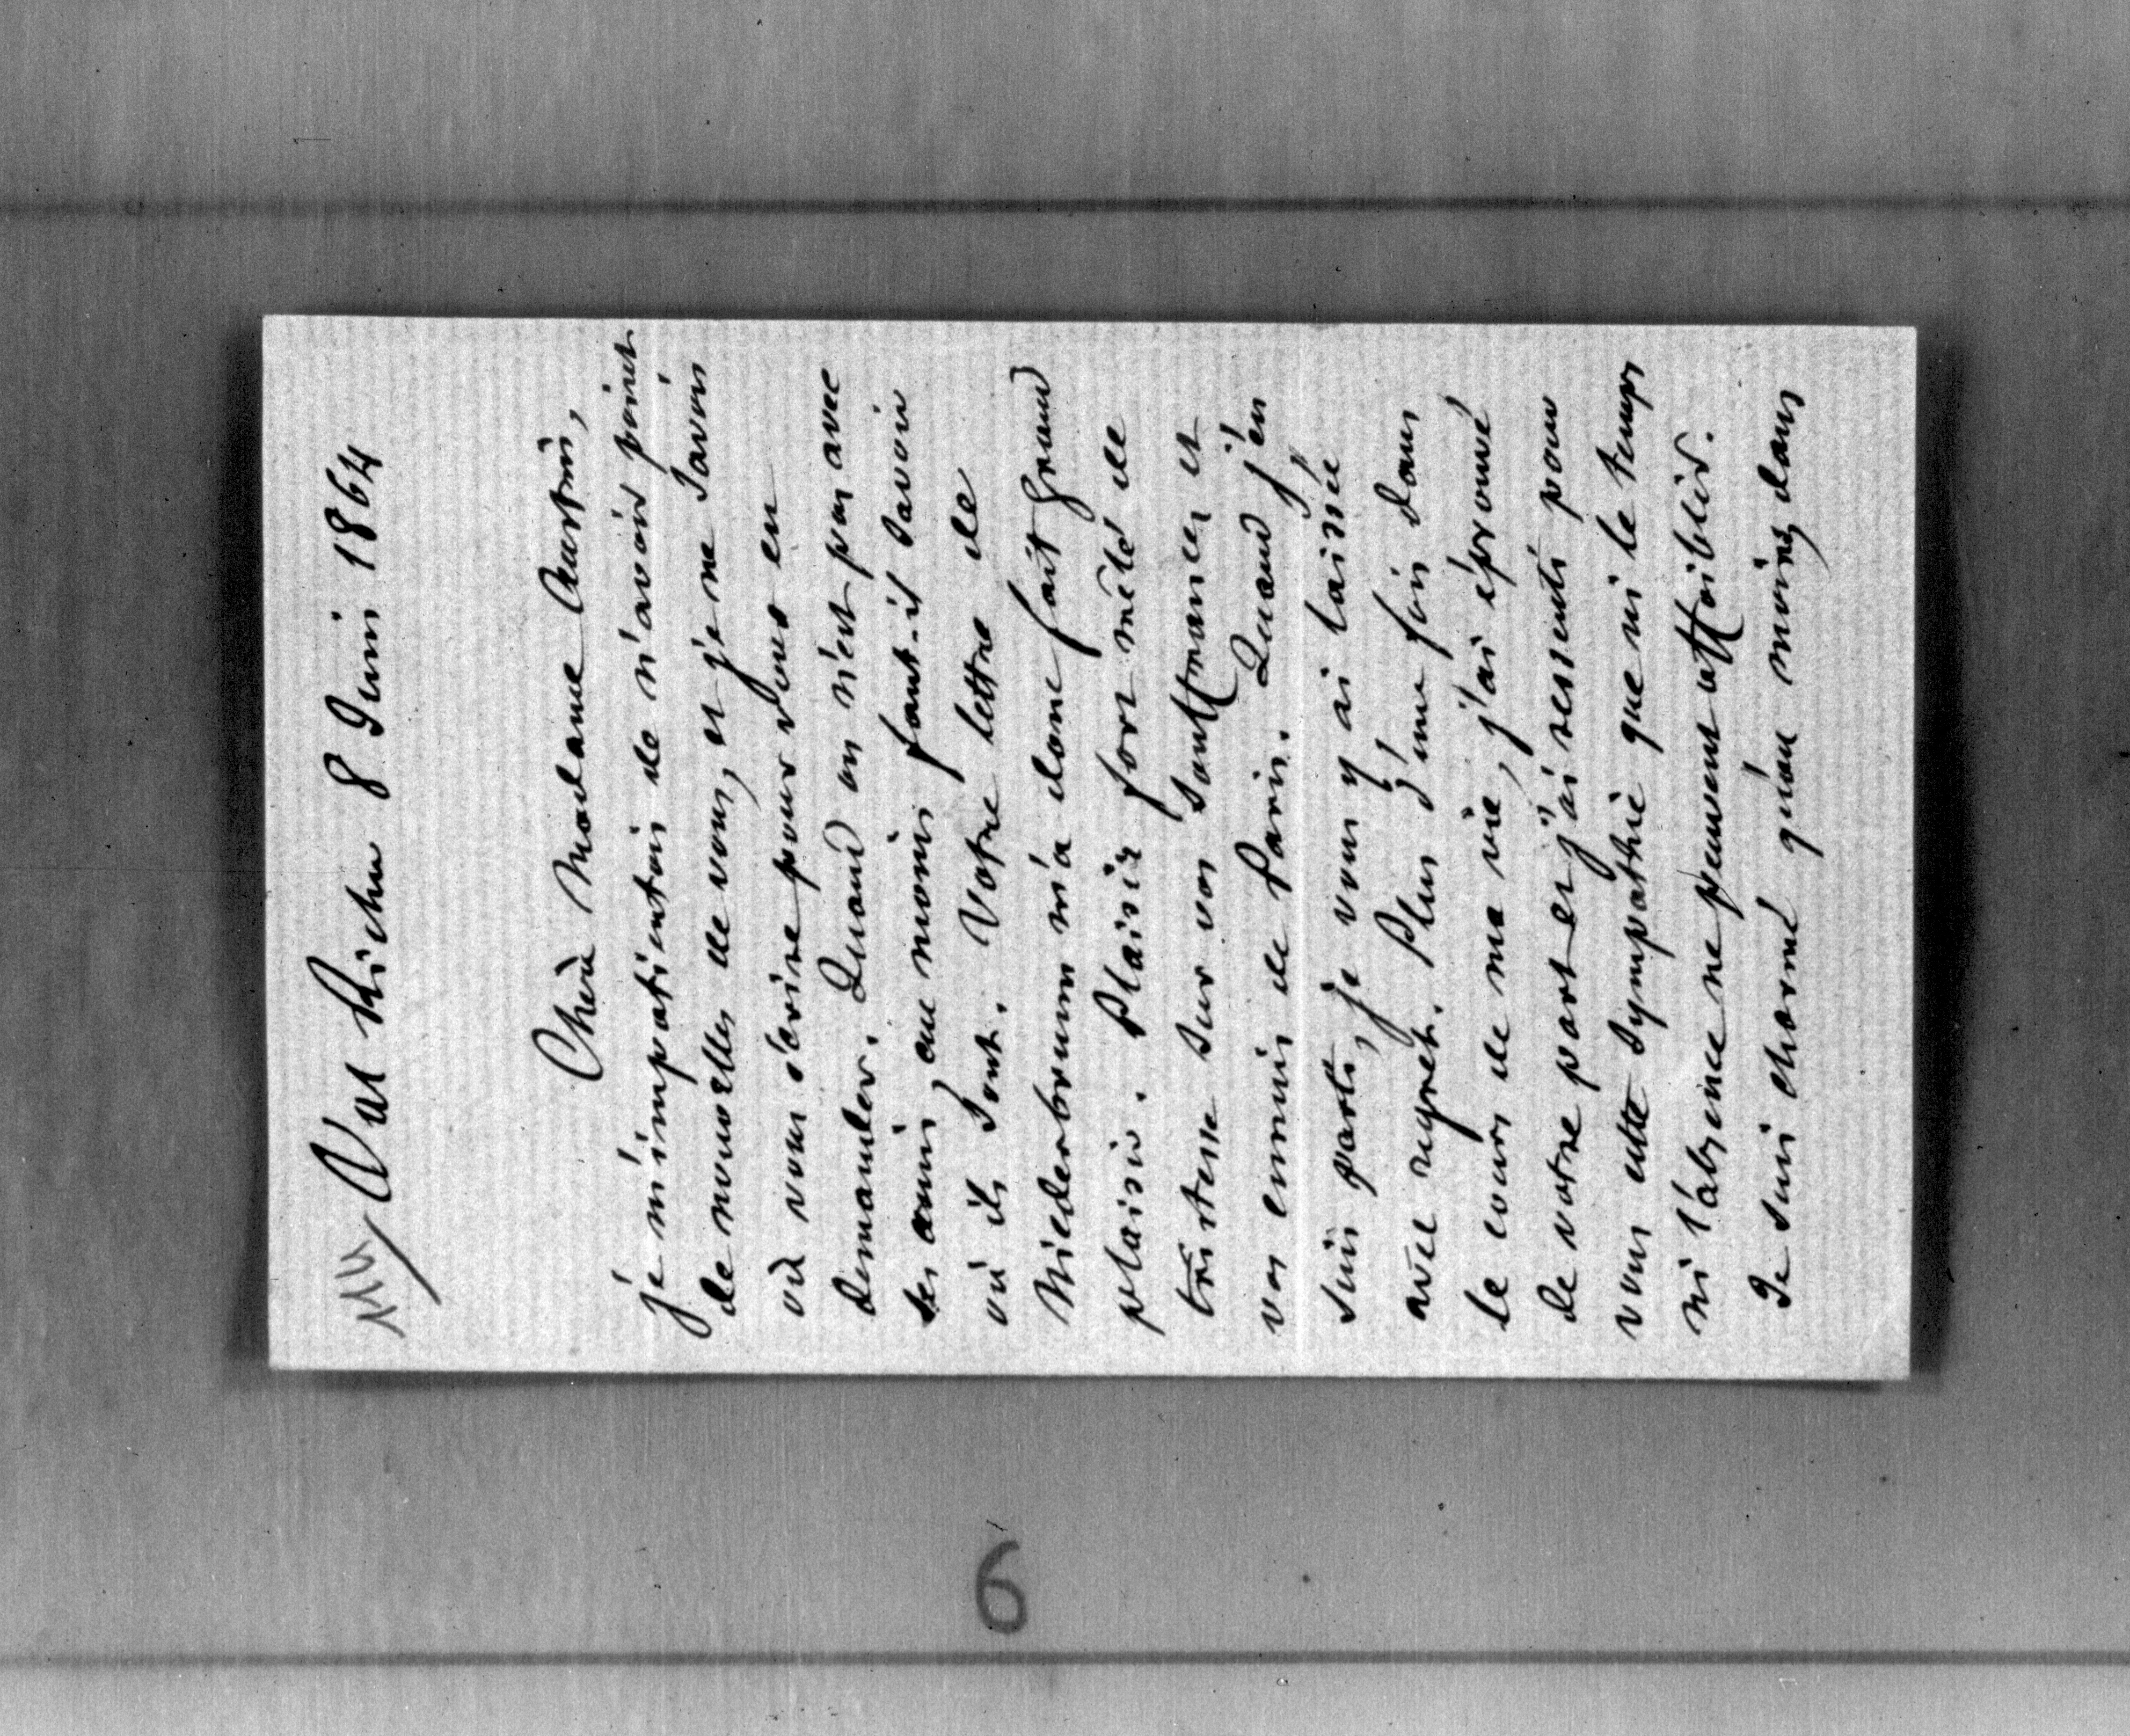 Val Richer 8 Juin 1864
Chère Madame Austin,
je m'impatientois de n'avoir point
de nouvelles de vous, et je ne savois
où vous écrire pour vous en
demander. Quand on n'est pas avec
ses amis, au moins faut-il savoir
où ils sont. Votre lettre de
Niederbrunn m'a donc fait grand
plaisir. Plaisir fort mêlé de
tristesse sur vos souffrances et
vos ennuis de Paris. Quand j'en
suis parti, je vous y ai laissée
avec regret. Plus d'une fois dans
le cours de ma vie, j'ai éprouvé
de votre part et j'ai ressenti pour
vous cette sympathie que ni le temps
ni l'absence ne peuvent affoiblir.
Je suis charmé qu'au moins, dans
6